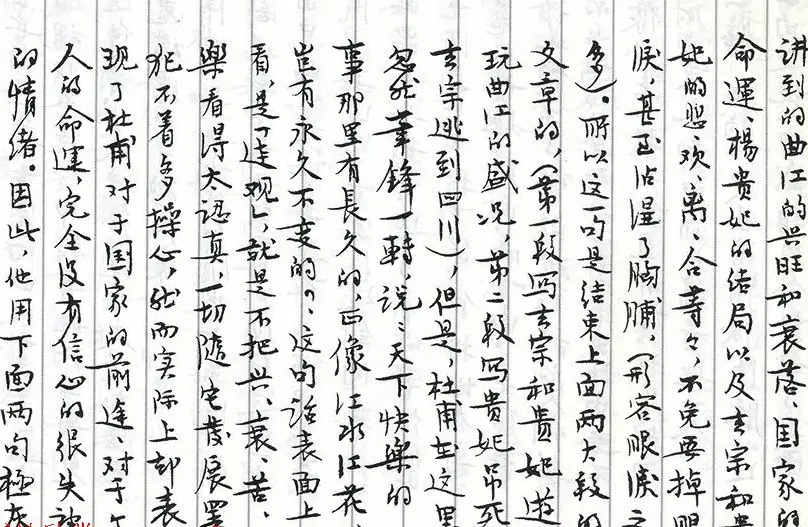 讲到的曲江的兴旺和衰落、国家的
命運、楊貴妃的结局以及玄宗和貴
妃的悲欢、离、合等々，不免要掉眼
淚，甚至沾湿了胸脯，（形容眼淚之
多）。所以这一句是结束上面两大段的
文章的，（第一段写玄宗和贵妃遊
玩曲江的盛况，第二段写贵妃吊死
玄宗逃到四川），但是，杜甫在这里
忽然筆鋒一轉，说：天下快樂的
事那里有長久的，正像江水江花，
岂有永久不变的？、这句话表面上
看，是「達观」，就是不把兴、衰、苦、
樂看得太認真，一切隨它发展罢
犯不着多操心，然而实际上却表
现了杜甫对于国家的前途、对于个
人的命運，完全没有信心的很失神
的情绪。因此，他用下面两句極